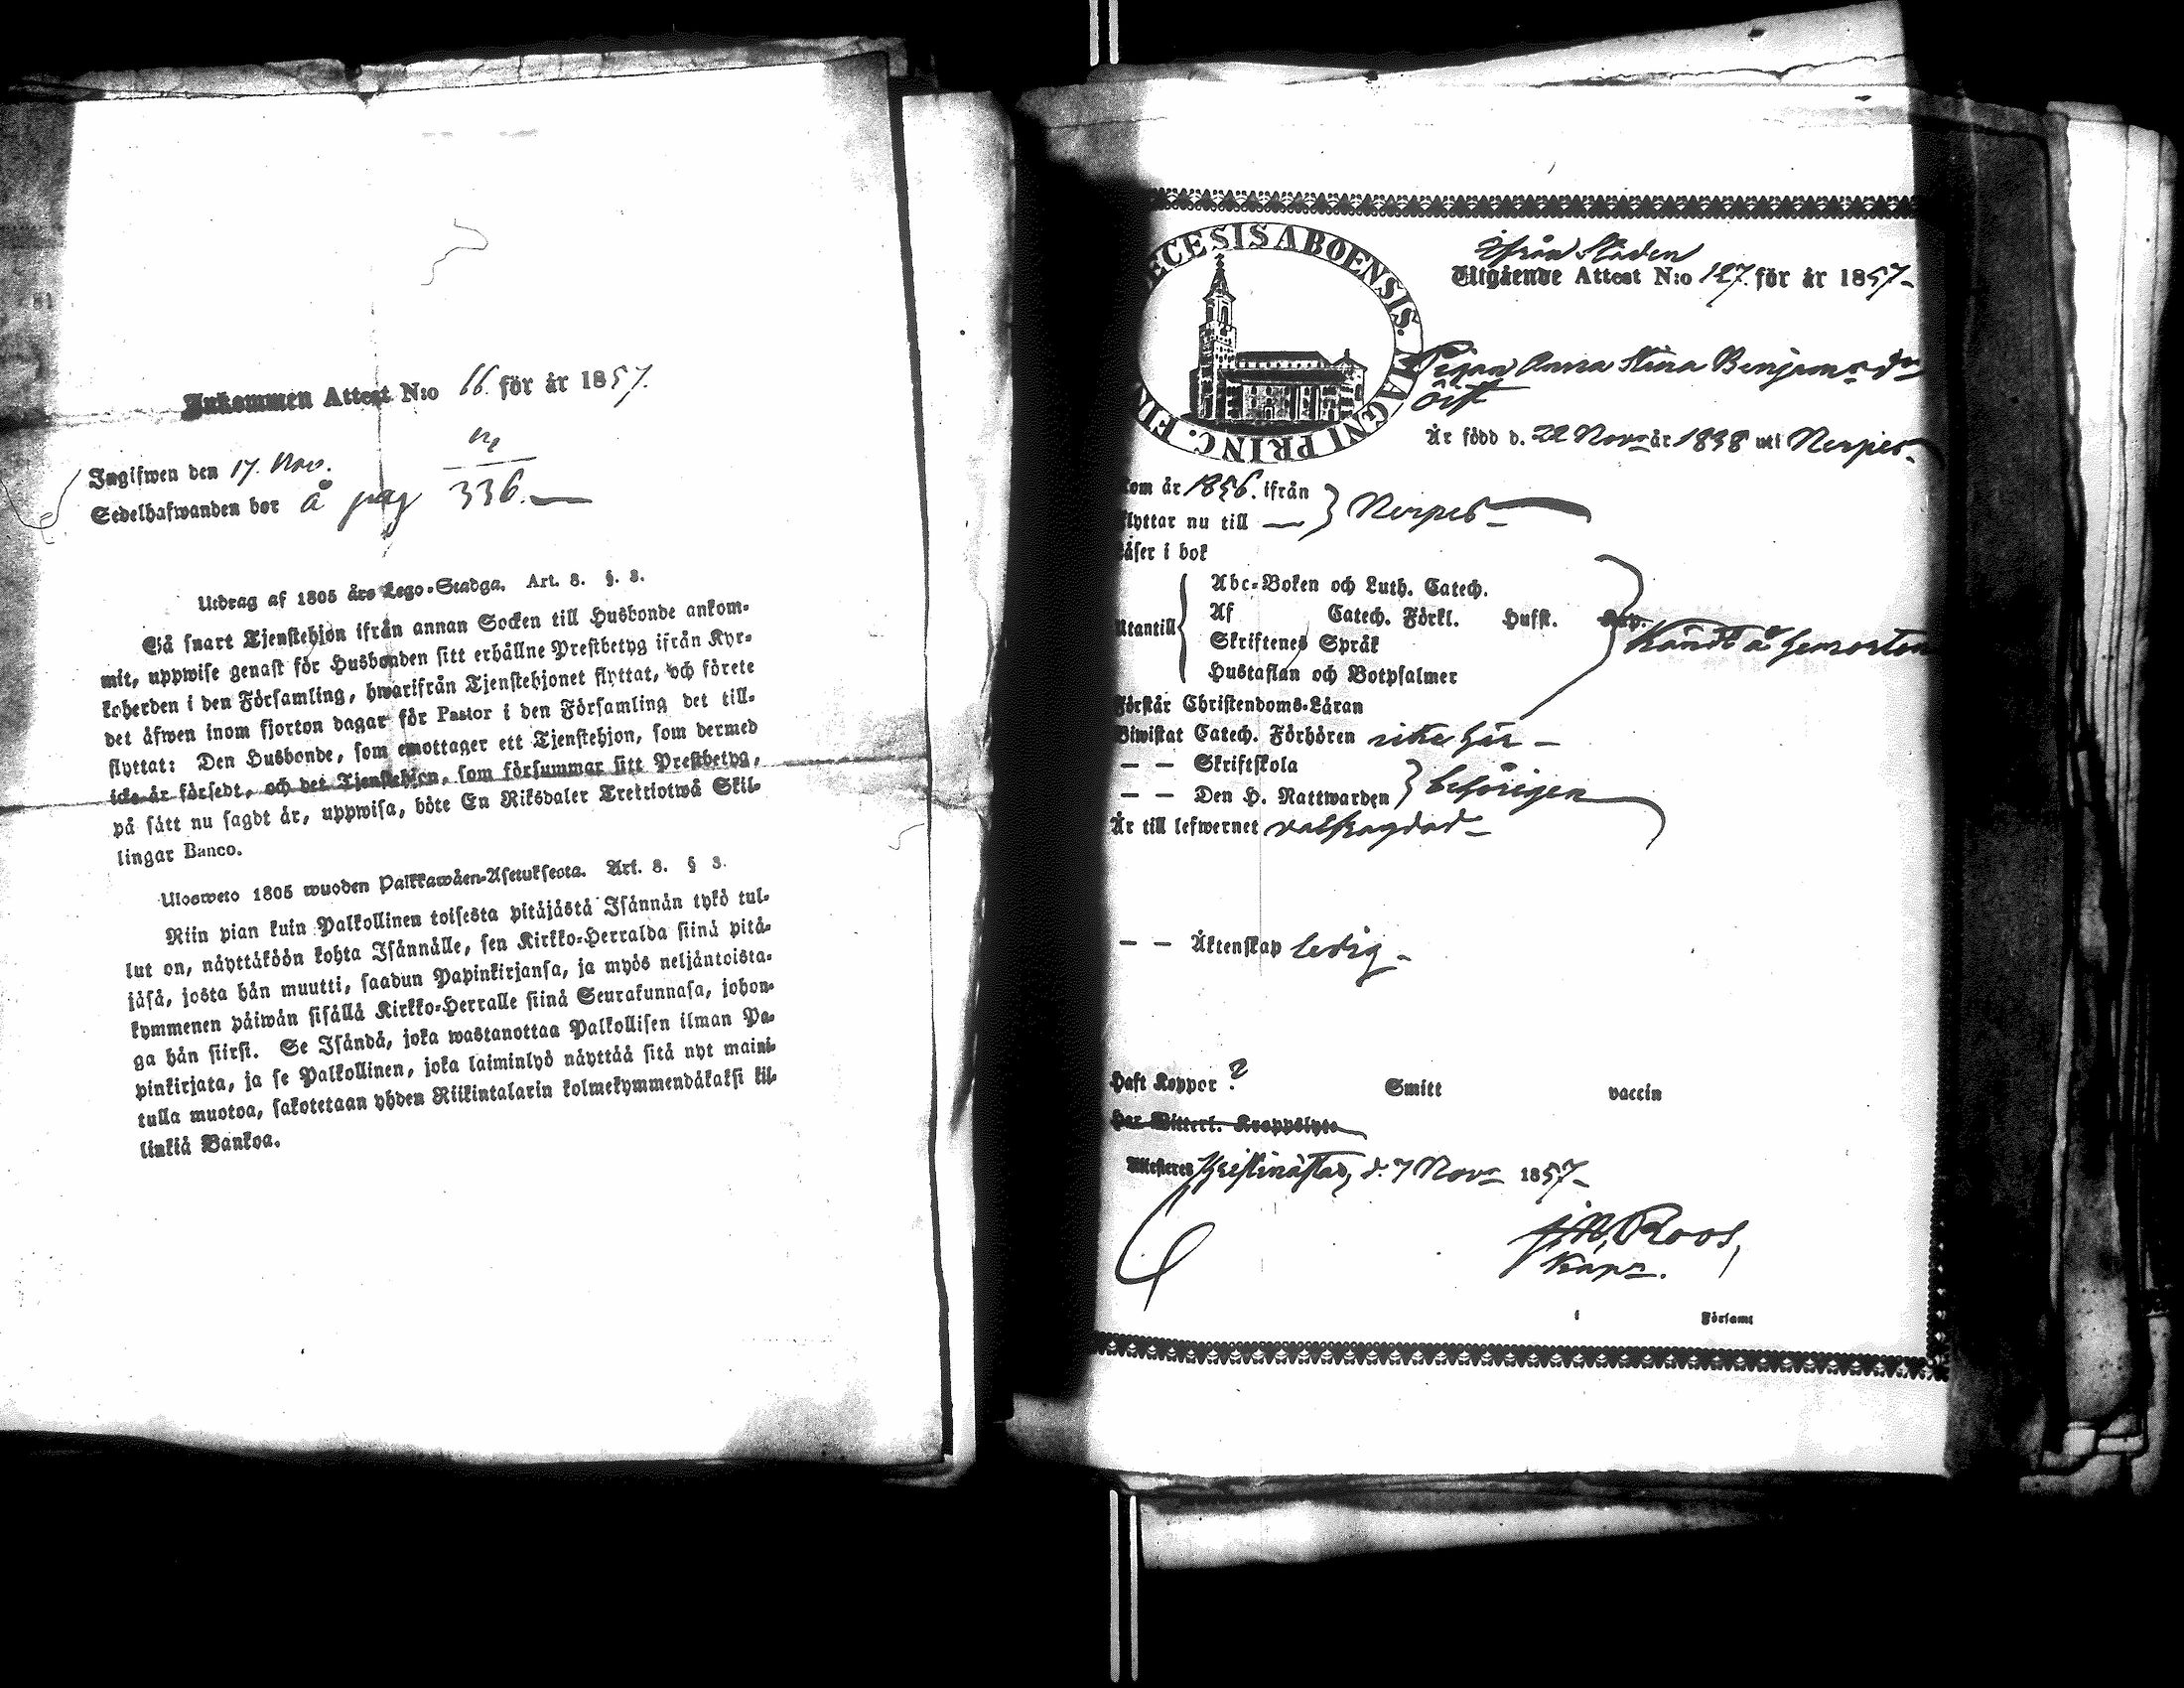 Inkommen Attest N:o 66. för år 1857.
Ingifwen den 17. Nov.
Sedelhafwanden bor å pag 336.
Utdrag af 1805 års Lego-Stadga. Art. 8. §. 3.
Så snart Tjenstehjon ifrån annan Socken till Husbonde ankom-
mit, uppwise genast för Husbonden sitt erhållne Prestbetyg ifrån Kyr-
koherden i den Församling, hwarifrån Tjenstehjonet flyttat, och förete
det äfwen inom fjorton dagar för Pastor i den Församling det till-
flyttat: Den Husbonde, som emottager ett Tjenstehjon, som dermed
icke är försedt, och det Tjenstehjon, som försummar sitt Prestbetyg,
på sätt nu sagdt är, uppwisa, böte En Riksdaler Trettiotwå Skil-
lingar Banco.
Ulosweto 1805 wuoden Palkkawäen-Asetuksesta. Art. 8. § 3.
Niin pian kuin Palkollinen toisesta pitäjästä Isännän tykö tul-
lut on, näyttäköön kohta Isännälle, sen Kirkko-Herralda siinä pitä-
jäsä, josta hän muutti, saadun Papinkirjansa, ja myös neljäntoista-
kymmenen päiwän sisällä Kirkko-Herralle siinä Seurakunnasa, johon-
ga hän siirsi. Se Isändä, joka wastanottaa Palkollisen ilman Pa-
pinkirjata, ja se Palkollinen, joka laiminlyö näyttää sitä nyt maini-
tulla muotoa, sakotetaan yhden Riikintalarin kolmekymmendäkaksi kil-
linkiä Bankoa.
ECESIS ABOENSIS. MAGNI PRINC. FI
ifrån Staden
Utgående Attest N:o 127. för år 1857-
Pigan Anna Stina Benjamsdr
Öist
Är född d. 22 Nov år 1838 uti Nerpes-
kom år 1856. ifrån
flyttar nu till — } Nerpes-
Läser i bok
Abc-Boken och Luth. Catech.
Utantill Af Catech. Förkl. Husst.
Skriftenes Språk
Hustaflan och Botpsalmer
Kändt å hemorten
Förstår Christendoms-Läran
Biwistat Catech. Förhören icke här -
— — Skriftskola
— — Den H. Nattwarden } behörigen
Är till lefwernet välfragdad-
— — Äktenskap ledig-
Haft Koppor ? Smitt vaccin
Har Witterl. Kroppslyte
Attesteres Kristinestad, d. 7 Nov 1857-
Roos,
Kapn.
i Församl